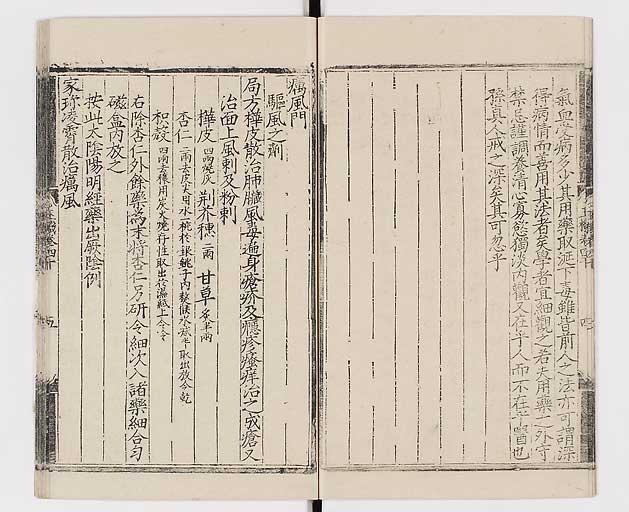 氣血受病多少其用藥取涎下毒雖皆前人之法亦可謂深
得病情而善用其法者矣學者宜細觀之若夫用藥之外守
禁忌謹調養清心寡慾獨淡內觀又在乎人而不在乎醫也
孫真人戒之深矣其可忽乎
癘風門
驅風之劑
局方樺皮散治肺臟風毒遍身瘡疥及癮疹瘙痒治之成瘡又
治面上風刺及粉刺
樺皮 四兩燒灰 荆芥穗 二兩 甘草 炙半兩
杏仁 二兩去皮尖用水一椀於銀銚子內熬候水減半取出放令乾
枳殼 四兩去穰用炭火燒存性取出於濕紙上令冷
右除杏仁外餘藥為末將杏仁另研令細次入諸藥細合勻
磁盒內放之
按此太陰陽明經藥出厥陰例
家珍凌霄散治癘風
四
五